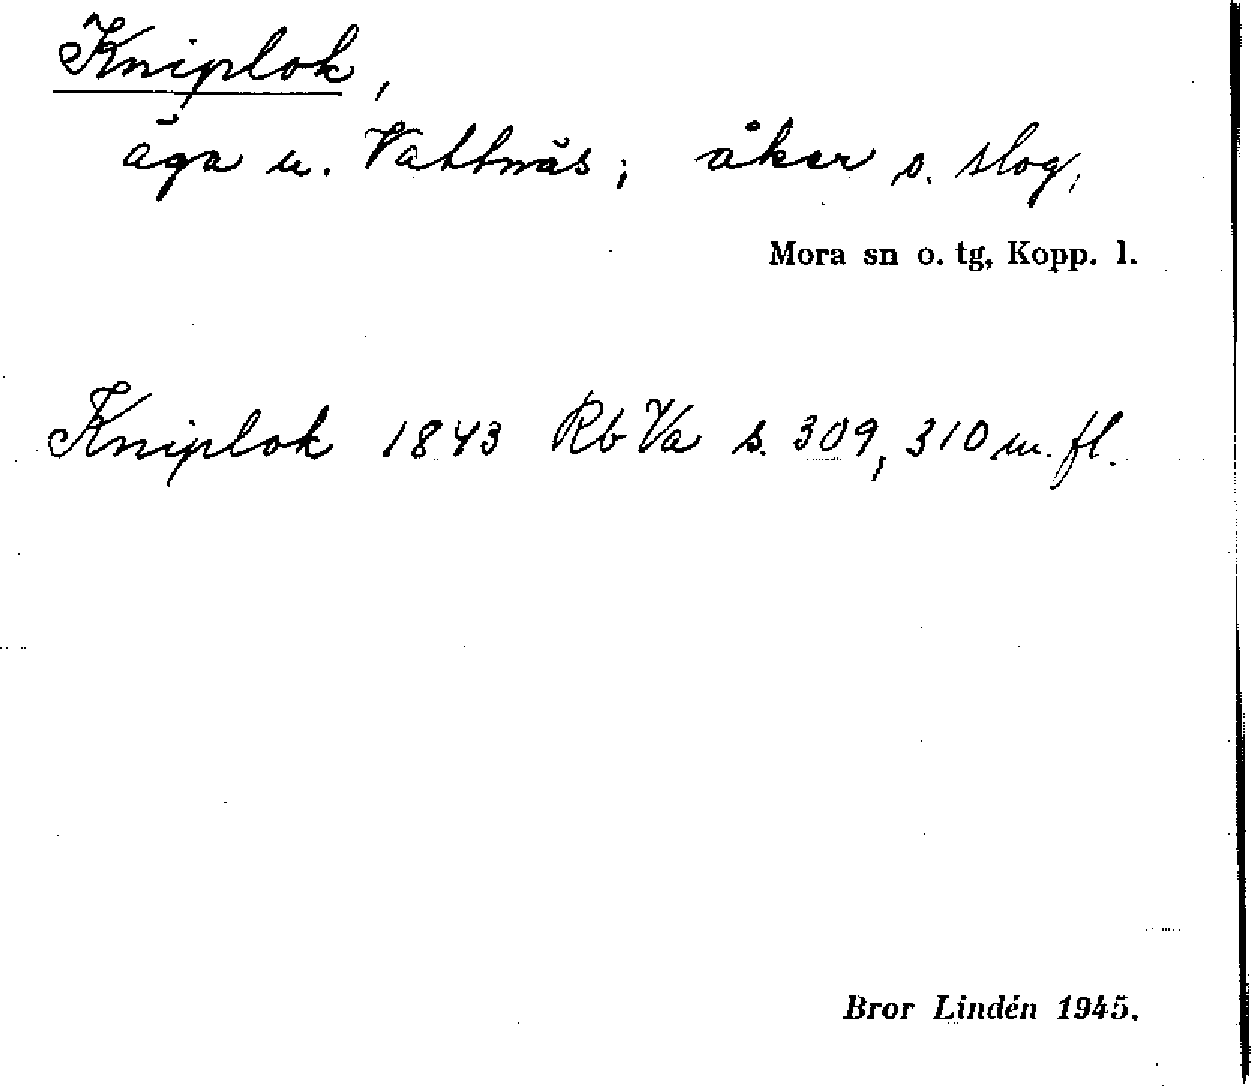 Kniplok,
äga u. Vattnäs; åker o. slog,
Mora sn o. tg, Kopp. l.
Kniplok 1843 Rb Va s. 309, 310 m. fl.
Bror Lindén 1945.